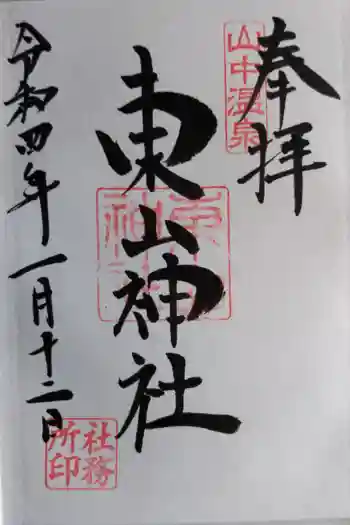 奉拝
山中温泉
東山神社
令和四年一月十二日
社務
所印